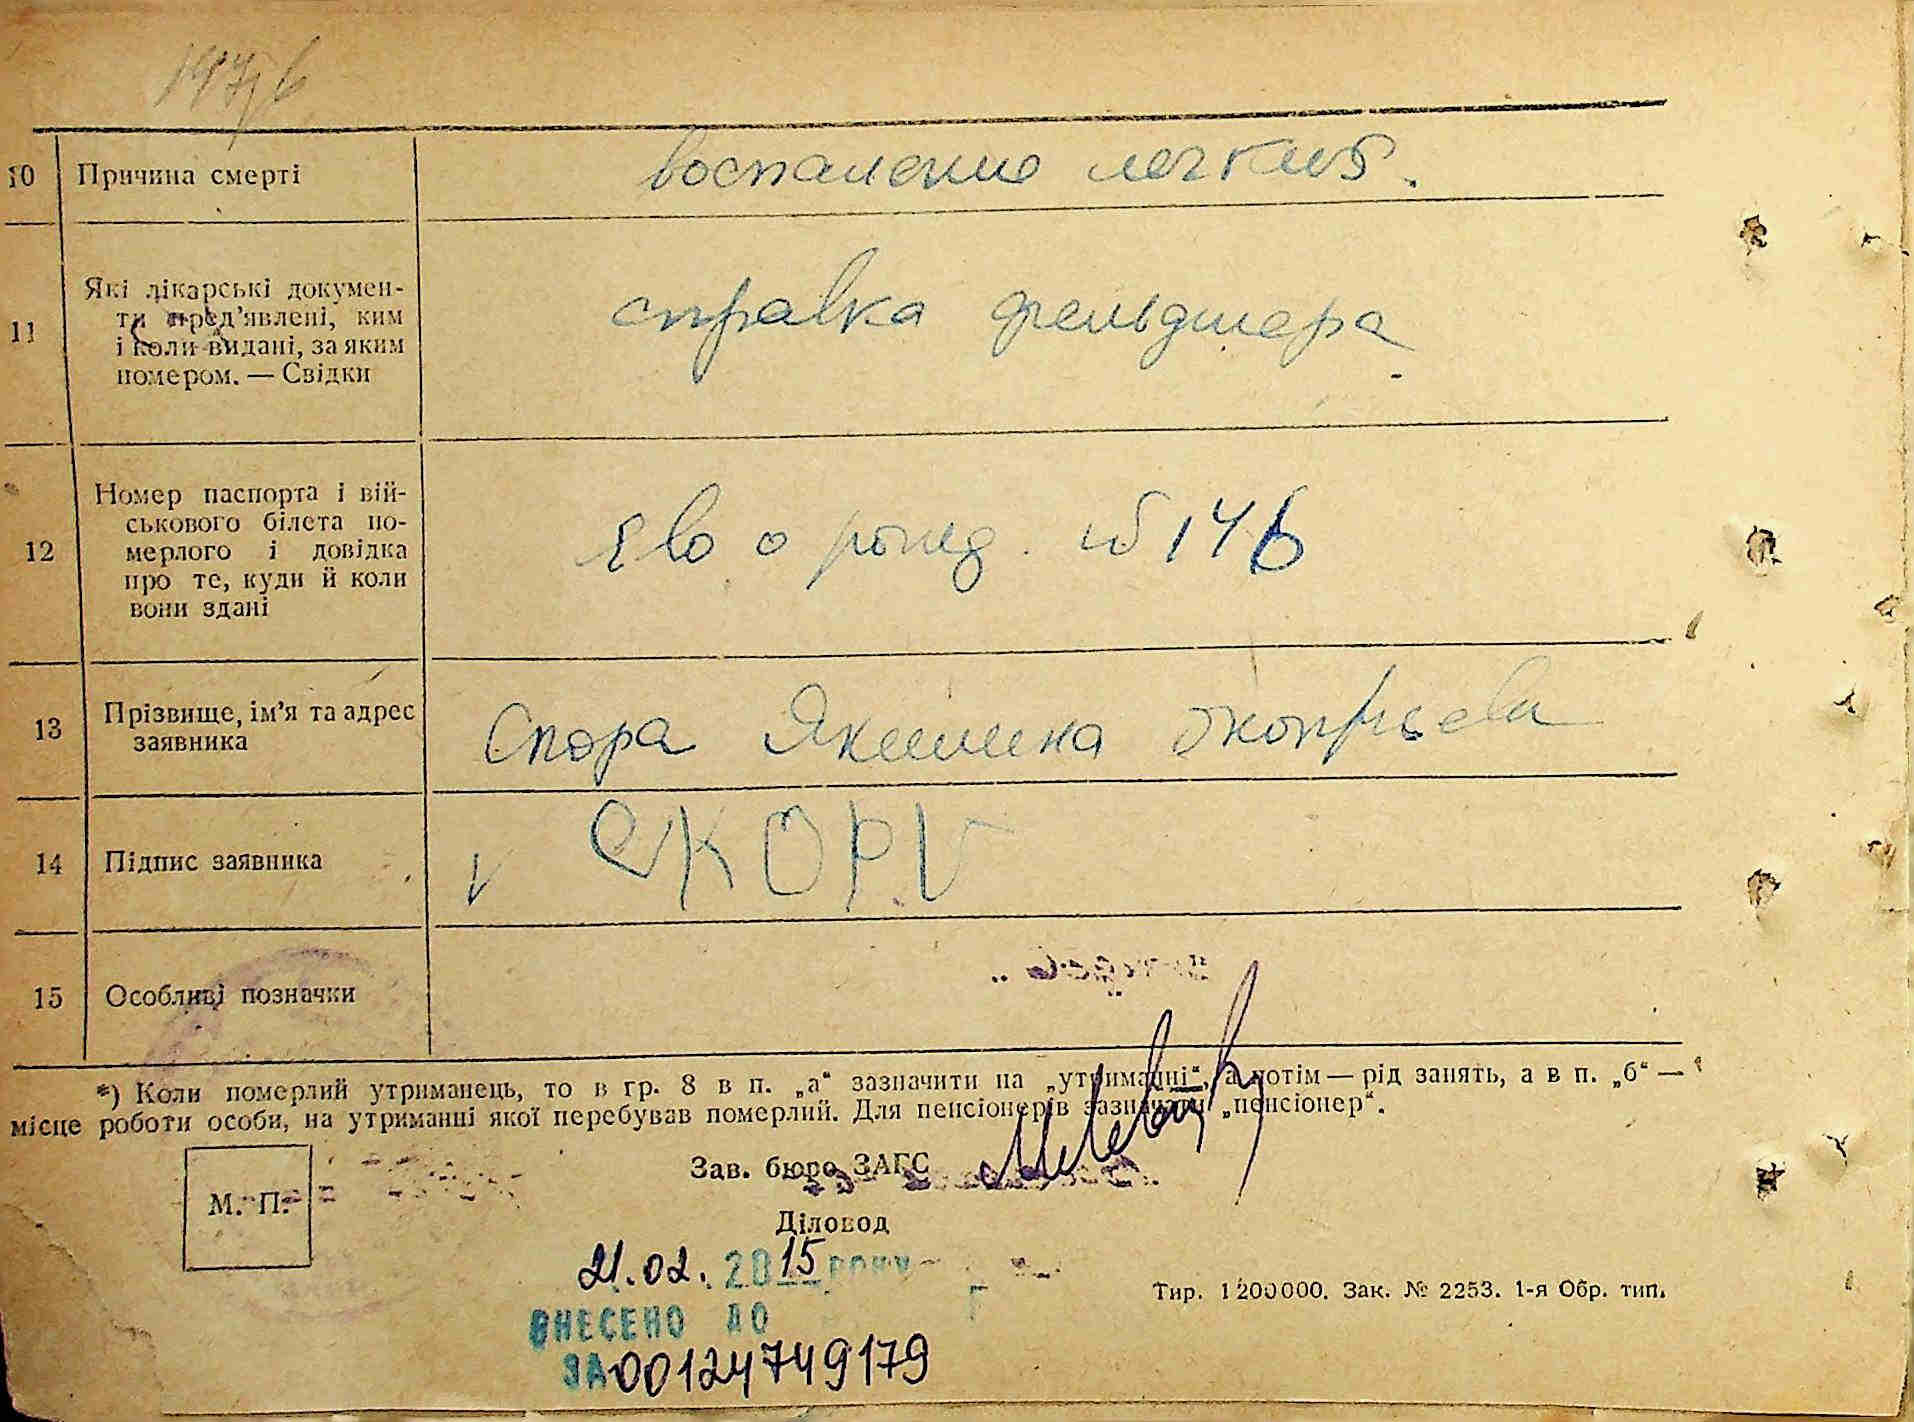 10 Причина смерті
воспаление легких.
11 Які лікарські докумен-
ти пред'явлені, ким
і коли видані, за яким
номером. — Свідки
справка фельдшера
12 Номер паспорта і вій-
ськового білета по-
мерлого і довідка
про те, куди й коли
вони здані
о рожд. № 146
13 Прізвище, ім'я та адрес
заявника
14 Підпис заявника
V
15 Особливі позначки
*) Коли померлий утриманець, то в гр. 8 в п. „а“ зазначити на „утриманні“, а потім — рід занять, а в п. „б“ —
місце роботи особи, на утриманні якої перебував померлий. Для пенсіонерів зазначати „пенсіонер“.
Зав. бюро ЗАГС
М. П.
Діловод
21.02. 2015 РОКУ
ВНЕСЕНО ДО
ЗА 00124749179
Тир. 1200000. Зак. № 2253. 1-я Обр. тип.